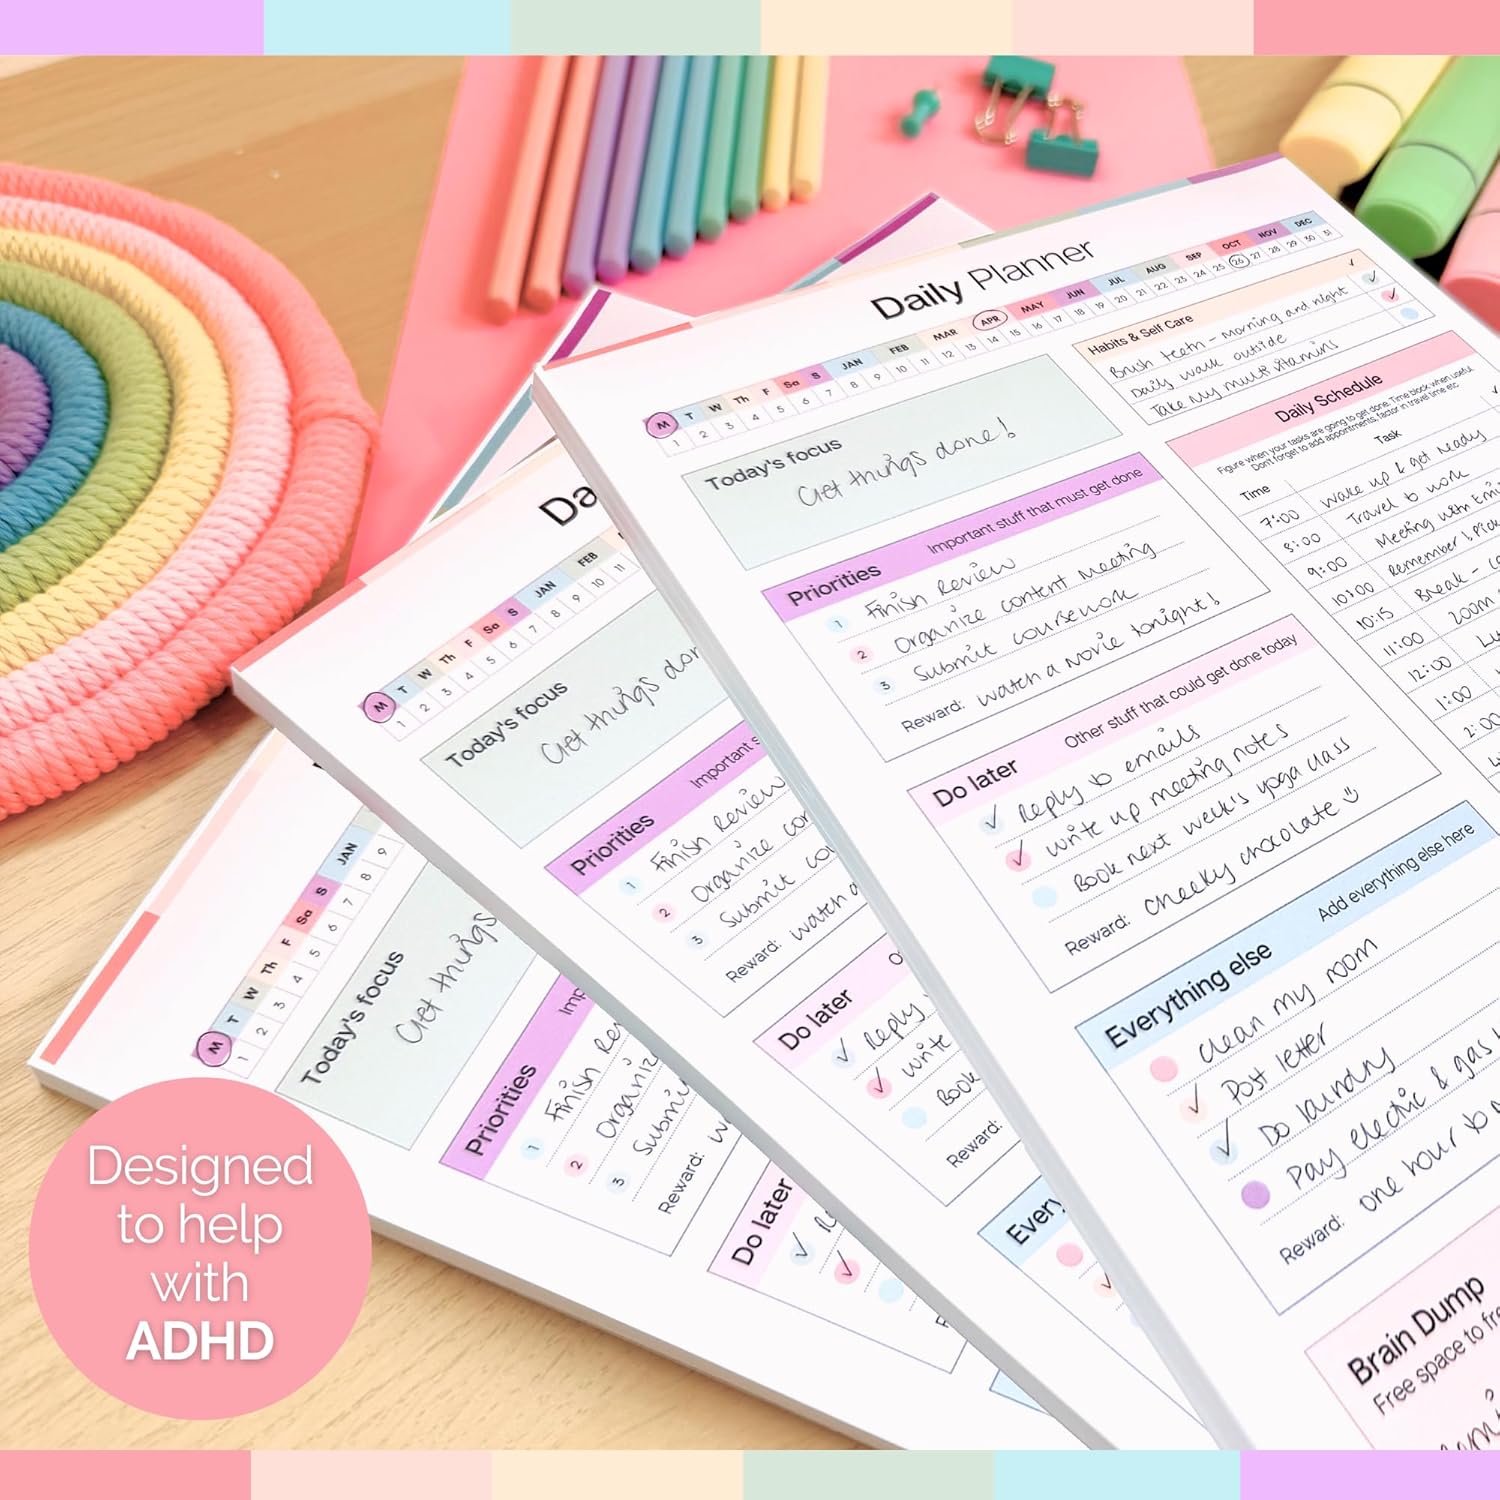 Daily Planner
M T W Th F Sa S JAN FEB MAR APR MAY JUN JUL AUG SEP OCT NOV DEC
1 2 3 4 5 6 7 8 9 10 11 12 13 14 15 16 17 18 19 20 21 22 23 24 25 26 27 28 29 30 31
Today's focus
Get things done!
Priorities Important stuff that must get done
1 Finish Review
2 Organize content meeting
3 Submit coursework
Reward: watch a movie tonight!
Do later Other stuff that could get done today
✓ Reply to emails
✓ Write up meeting notes
Book next week's yoga class
Reward: Cheeky chocolate
Everything else Add everything else here
Clean my room
✓ Post letter
✓ Do laundry
Pay electric & gas
Reward: one hour to
Brain Dump
Free space to
Habits & Self Care ✓
Brush teeth - morning and night ✓
Daily walk outside ✓
Take my multivitamins
Daily Schedule
Figure when your tasks are going to get done. Time block when useful.
Don't forget to add appointments, factor in travel time etc
Time Task ✓
7:00 Wake up & get ready
8:00 Travel to work
9:00 Meeting with
10:00 Remember!
10:15 Break -
11:00 Zoom
12:00
1:00
2:00
Da
M T W Th F Sa S JAN FEB
1 2 3 4 5 6 7 8 9 10 11
Today's focus
Get things don
Priorities Important s
1 Finish Review
2 Organize co
3 Submit co
Reward: watch a
Do later
✓ Reply
✓ Write
Book
Reward:
Every
M T W Th F Sa S JAN
1 2 3 4 5 6 7 8 9
Today's focus
Get things
Priorities Imp
1 Finish Re
2 Organiz
3 Submi
Reward: w
Do later
✓ R
✓
Designed
to help
with
ADHD